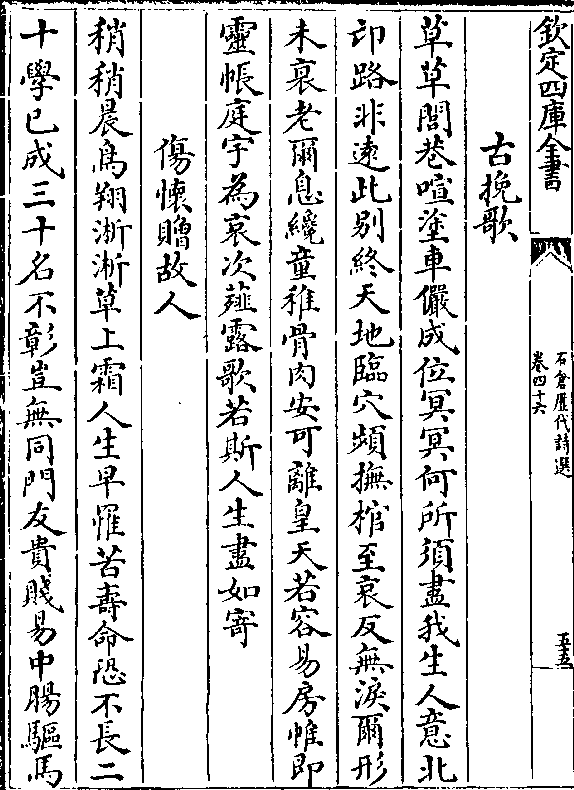 欽定四庫全書
石倉歷代詩選
卷四十六
五五
古挽歌
草草閭巷喧塗車儼成位冥冥何所須盡我生人意北
邙路非遠此别終天地臨穴頻撫棺至哀反無淚爾形
未衰老爾息纔童稚骨肉安可離皇天若容易房帷即
靈帳庭宇為哀次薤露歌若斯人生盡如寄
傷懷贈故人
稍稍晨鳥翔淅淅草上霜人生早罹苦壽命恐不長二
十學已成三十名不彰豈無同門友貴賤易中腸驅馬